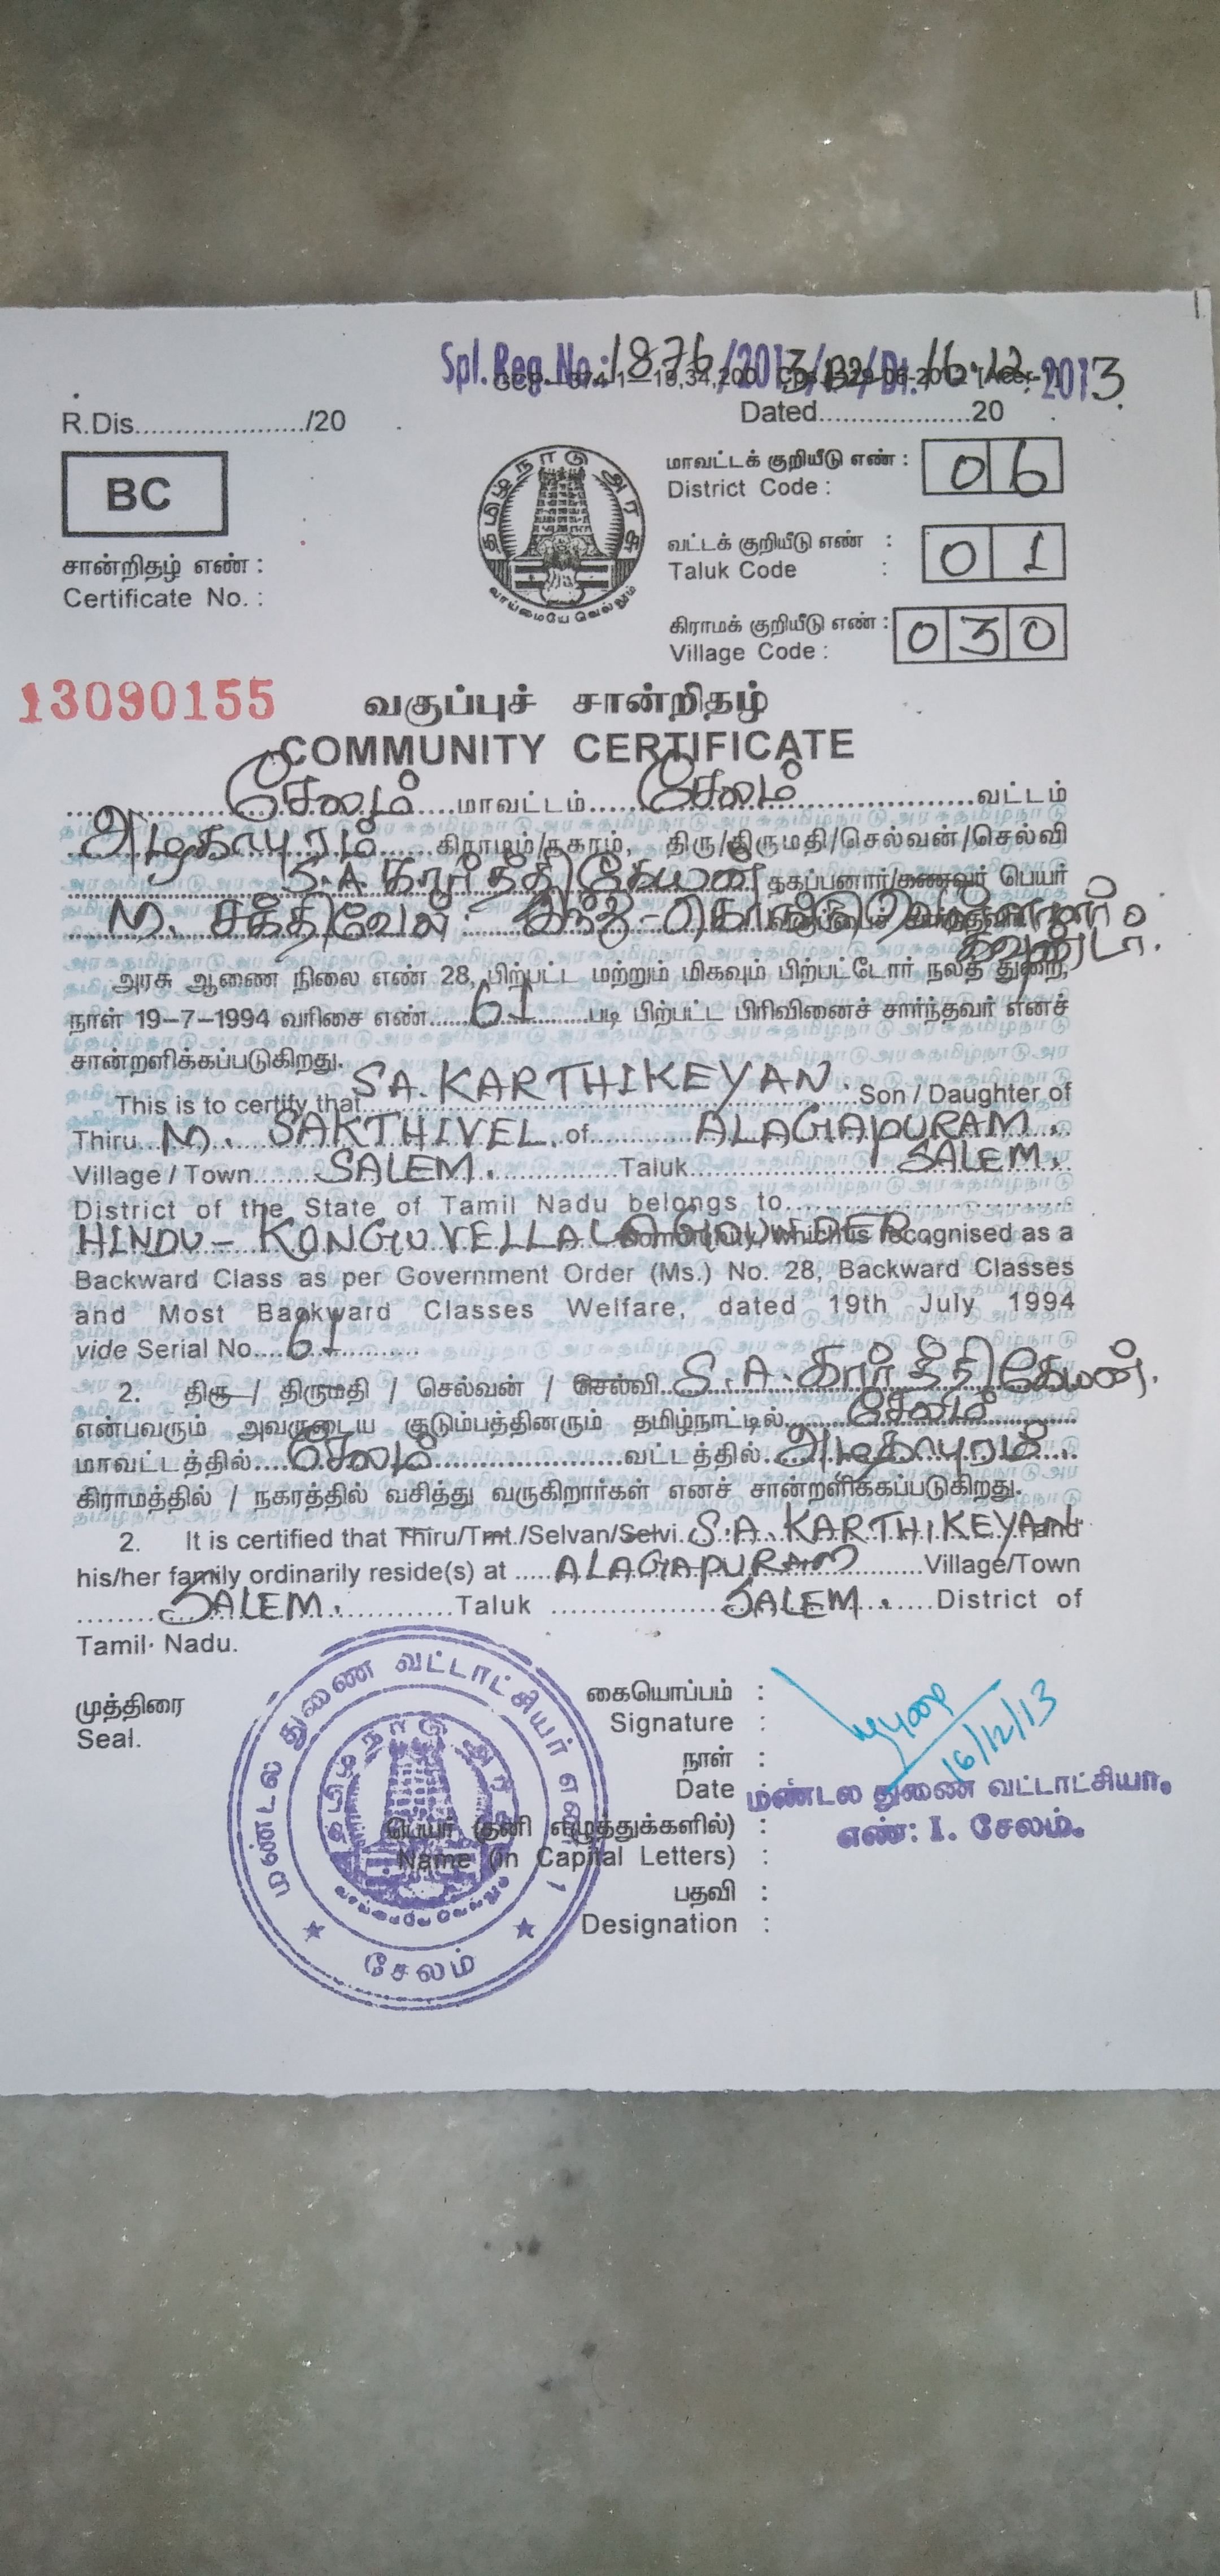 Spl. Reg. No.: 1876/2013/B2/Dt. 16.12.2013
R.Dis...................../20
Dated...................20
BC
தமிழ்நாடு அரசு
வாய்மையே வெல்லும்
மாவட்டக் குறியீடு எண் : 06
District Code :
வட்டக் குறியீடு எண் : 01
Taluk Code :
சான்றிதழ் எண் :
Certificate No. :
கிராமக் குறியீடு எண் : 030
Village Code :
13090155
வகுப்புச் சான்றிதழ்
COMMUNITY CERTIFICATE
சேலம் மாவட்டம் சேலம் வட்டம்
அழகாபுரம் கிராமம்/நகரம், திரு/திருமதி/செல்வன்/செல்வி
S.A கார்த்திகேயன் தகப்பனார்/கணவர் பெயர்
M. சக்திவேல் இந்து-கொங்கு வேளாளர்
கவுண்டர்.
அரசு ஆணை நிலை எண் 28, பிற்பட்ட மற்றும் மிகவும் பிற்பட்டோர் நலத் துறை,
நாள் 19-7-1994 வரிசை எண் 61 படி பிற்பட்ட பிரிவினைச் சார்ந்தவர் எனச்
சான்றளிக்கப்படுகிறது.
This is to certify that SA. KARTHIKEYAN. Son / Daughter of
Thiru M. SAKTHIVEL. of ALAGAPURAM.
Village / Town SALEM. Taluk SALEM.
District of the State of Tamil Nadu belongs to
HINDU - KONGU VELLALAR GOUNDER Community, which is recognised as a
Backward Class as per Government Order (Ms.) No. 28, Backward Classes
and Most Backward Classes Welfare, dated 19th July 1994
vide Serial No. 61
2. திரு / திருமதி / செல்வன் / செல்வி S.A. கார்த்திகேயன்.
என்பவரும் அவருடைய குடும்பத்தினரும் தமிழ்நாட்டில் சேலம்
மாவட்டத்தில் சேலம் வட்டத்தில் அழகாபுரம்
கிராமத்தில் / நகரத்தில் வசித்து வருகிறார்கள் எனச் சான்றளிக்கப்படுகிறது.
2. It is certified that Thiru/Tmt./Selvan/Selvi. S.A. KARTHIKEYAN and
his/her family ordinarily reside(s) at ALAGAPURAM Village/Town
SALEM. Taluk SALEM. District of
Tamil Nadu.
முத்திரை
Seal.
மண்டல துணை வட்டாட்சியர் எண் 1
தமிழ்நாடு அரசு
வாய்மையே வெல்லும்
சேலம்
கையொப்பம் :
Signature :
16/12/13
நாள் :
Date :
மண்டல துணை வட்டாட்சியர்.
எண்: I. சேலம்.
பெயர் (தனி எழுத்துக்களில்) :
Name (in Capital Letters) :
பதவி :
Designation :